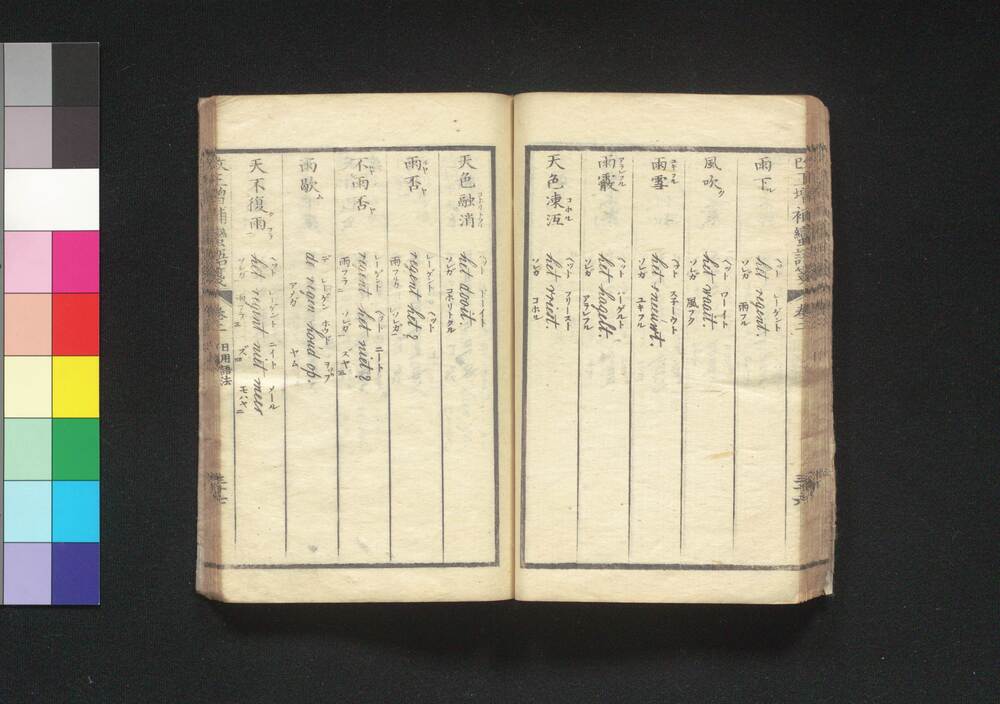 雨下ル
ヘット レーゲント
het regent.
ソレガ 雨フル
風吹ク
ヘット ワーイト
het waait
ソレガ 風フク
雨雪
ヘット スネーウト
het sneeuwt.
ソレガ ユキフル
雨霰
ヘット ハーゲルト
het hagelt.
ソレガ アラレフル
天色凍冱
ヘット フリースト
het vriest.
ソレガ コホル
天色融消
het dooit.
ソレガ コホリトクル
雨否
レーゲント ヘット
regent het?
雨フルカ ソレガ
不雨否
レーゲント ヘット ニート
regent het niet?
雨フラ ソレガ
雨歇ム
デ レーゲン ホウド ヲップ
de regen houd op.
アメガ ヤム
天不復雨
ヘット レーゲント ニイト メール
het regent niet meer
ソレガ 雨フラ ズ モハヤ
改正増補蠻語箋
卷二
日用語法
三十七